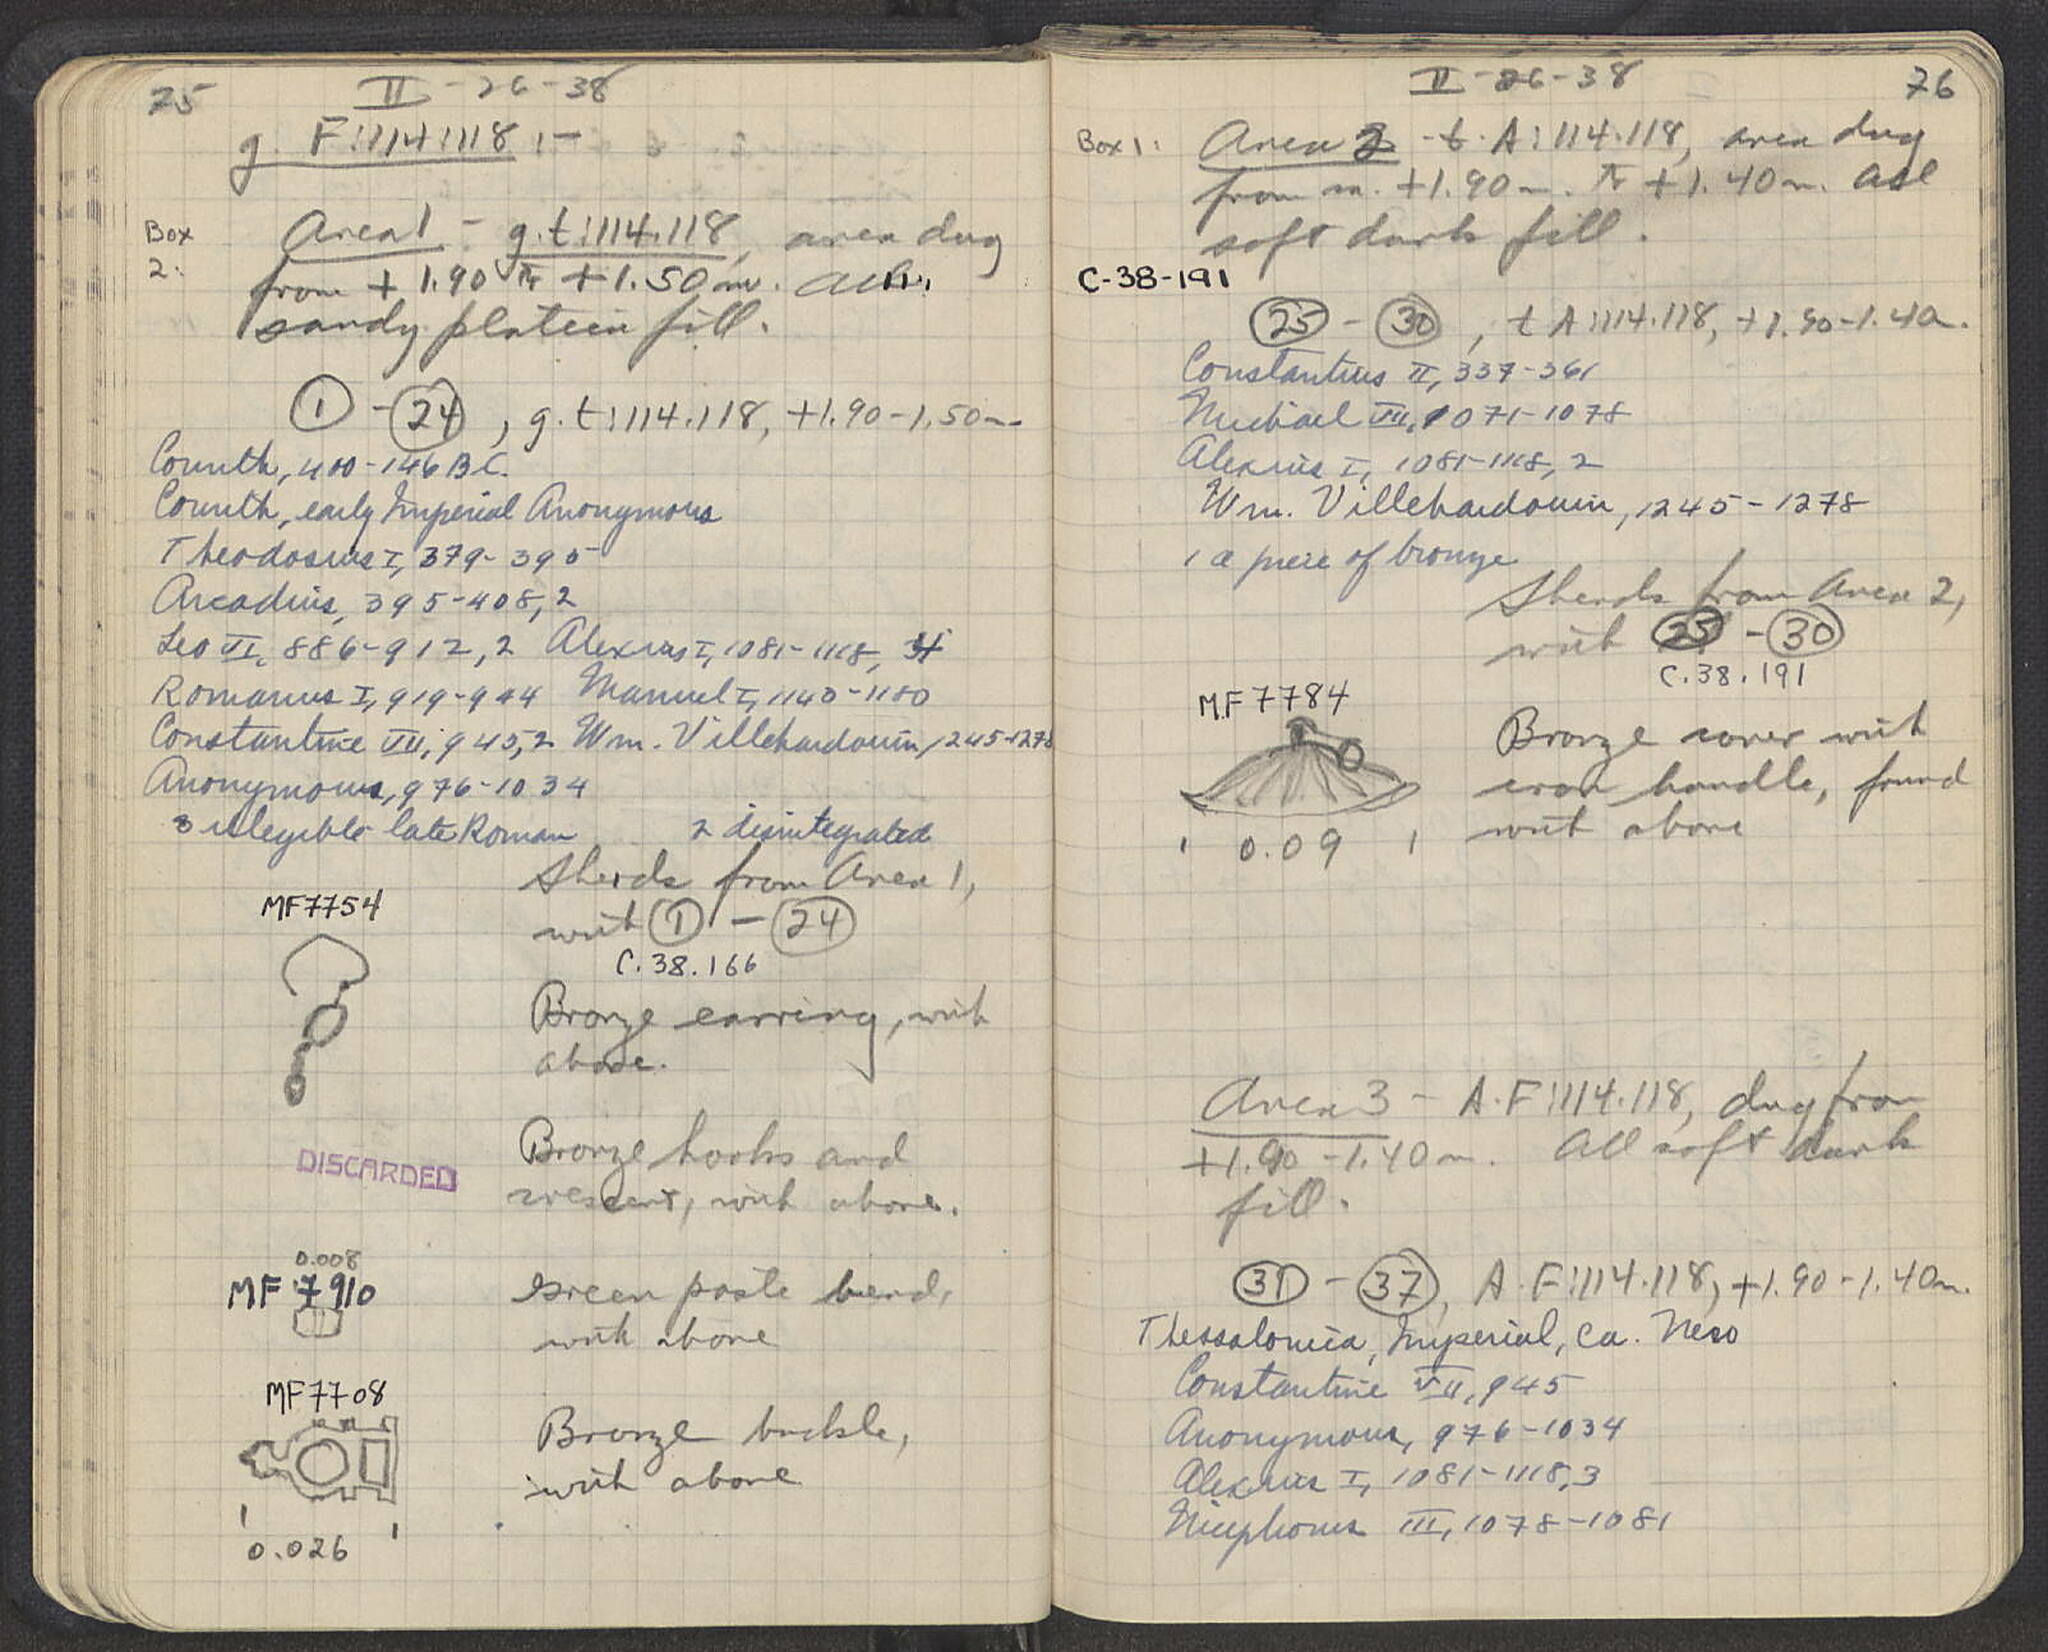 75
II - 26 - 38
g. F:114:118 :-
Box 2:
Area 1 - g.t:114.118, area dug
from +1.90 to +1.50 m. All
sandy plateia fill.
1 - 24, g.t:114.118, +1.90-1.50m.
Corinth, 400-146 B.C.
Corinth, early Imperial Anonymous
Theodosius I, 379-395
Arcadius, 395-408, 2
Leo VI, 886-912, 2 Alexius I, 1081-1118,
Romanus I, 919-944 Manuel I, 1143-1180
Constantine VII, 945, 2 Wm. Villehardouin, 1245-1278
Anonymous, 976-1034
3 illegible late Roman 2 disintegrated
Sherds from Area 1,
with 1 - 24
C.38.166
MF7754
Bronze earring, with
above.
DISCARDED
Bronze hooks and
crescent, with above.
0.008
MF 7910
Green paste bead,
with above
MF7708
Bronze buckle,
with above
0.026
II - 26 - 38
76
Box 1:
Area 2 - t.A:114.118, area dug
from m. +1.90m. to +1.40m. All
soft dark fill.
C-38-191
25 - 30, t A:114.118, +1.90-1.40m.
Constantius II, 337-361
Michael VII, 1071-1078
Alexius I, 1081-1118, 2
Wm. Villehardouin, 1245-1278
1 a piece of bronze
Sherds from Area 2,
with 25 - 30
C.38.191
MF7784
Bronze cover with
iron handle, found
with above
0.09
Area 3 - A.F:114.118, dug from
+1.90-1.40m. All soft dark
fill.
31 - 37, A.F:114.118, +1.90-1.40m.
Thessalonica, Imperial, ca. Nero
Constantine VII, 945
Anonymous, 976-1034
Alexius I, 1081-1118, 3
Nicephorus III, 1078-1081